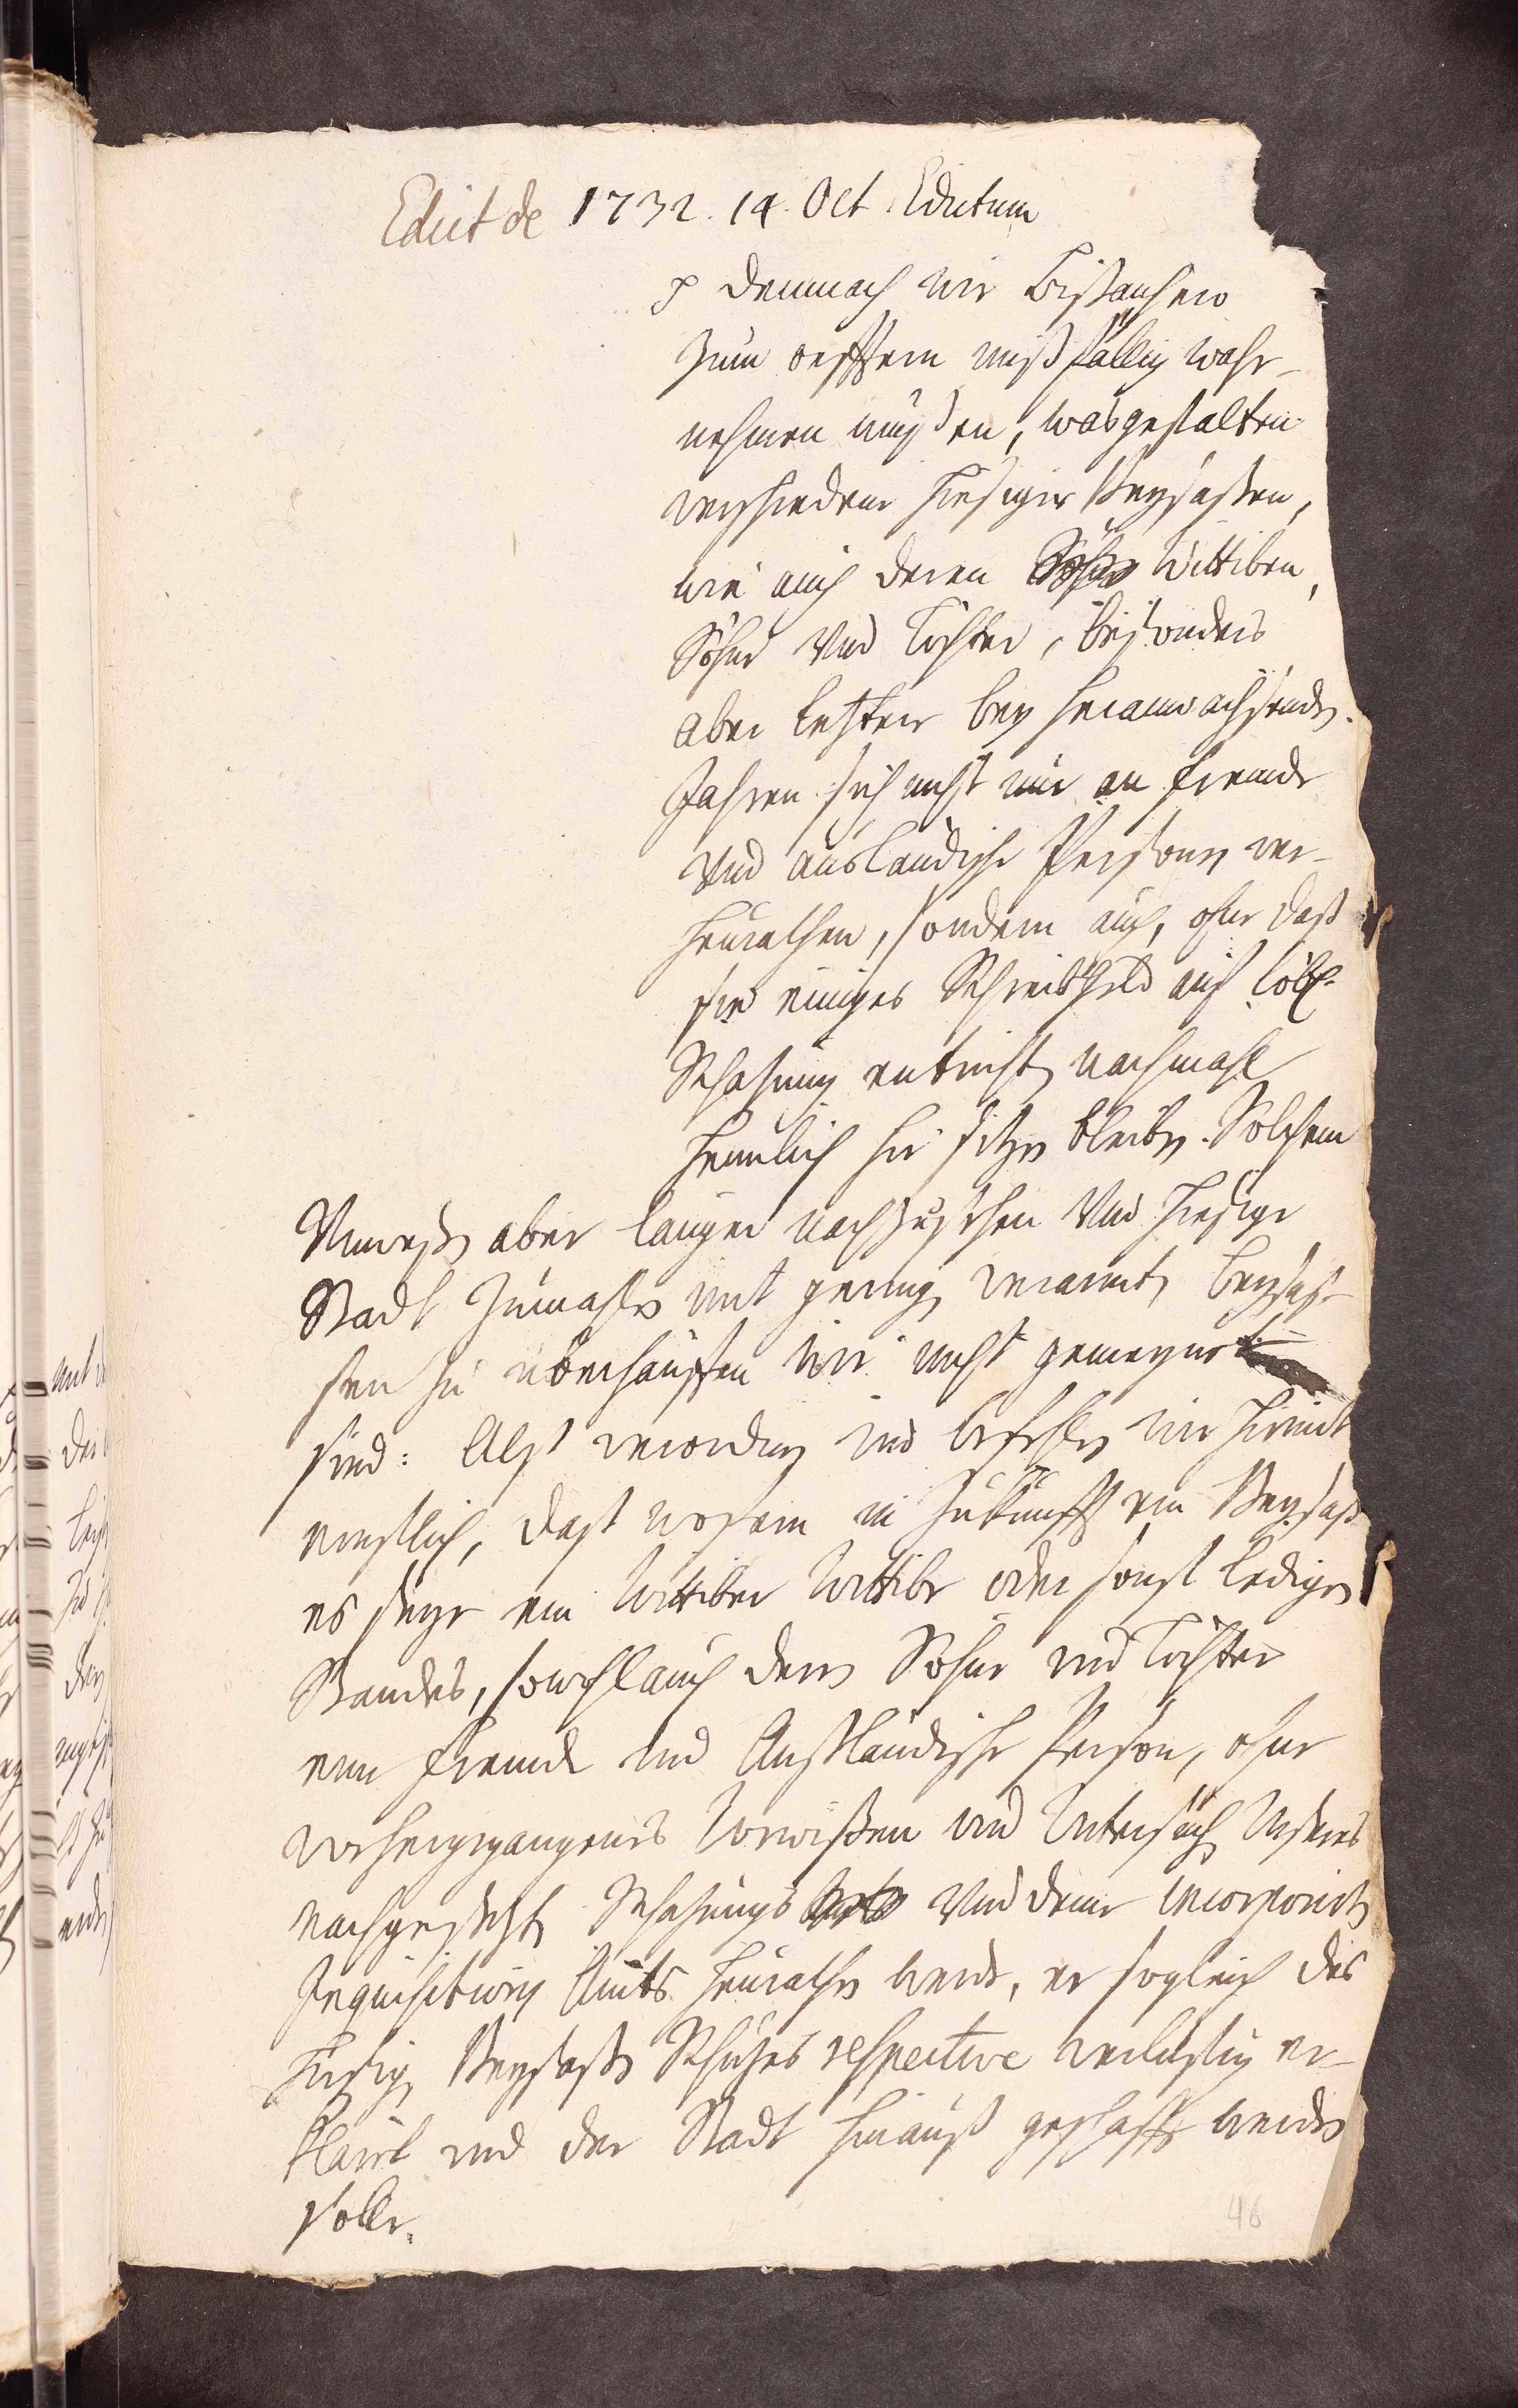 Edict de 1732. 14. Oct. Edictum
P demnach wir bißanhero
zum oefftern mißfällig wahr-
nehmen müßen, wasgestalten
verschiedene hiesiger Beysaßen,
wie auch deren Söhne Wittiben,
Söhne Und Töchter, besonders
aber letztere bey heranwachsenden
Jahren sich nicht nur an frembde
Und ausländische Persohnen ver-
heurathen, sondern auch, ohne daß
sie einiges Schreibgeld auf löbl.
Schatzung entrichten nachmahl
heimlich hier sitzen bleiben. Solchem
Unweßen aber länger nachzusehen Und hiesige
Stadt zumahlen mit gering verarmten beysaß-
sen zu überhäuffen wir nicht gemeynet
sind: Alß verordnen und befehlen wir hiemit
ernstlich, daß wofern in Zukunfft ein Beysaß
es seye ein Wittiber Wittibe oder sonst ledigen
Standes, sowohl auch deren Söhne und Töchter
eine frembde und Außländische Person, ohne
vorhergegangenes Vorwißen und Untersuch Unseres
nachgesetzten Schatzungs Amts Und deme incorporirten
Inquisitions Amts heurathen werde, er sogleich des
hiesigen Beysaßen Schutzes respective verlustig er-
klärt und der Stadt hinauß geschafft werden
solle.
46